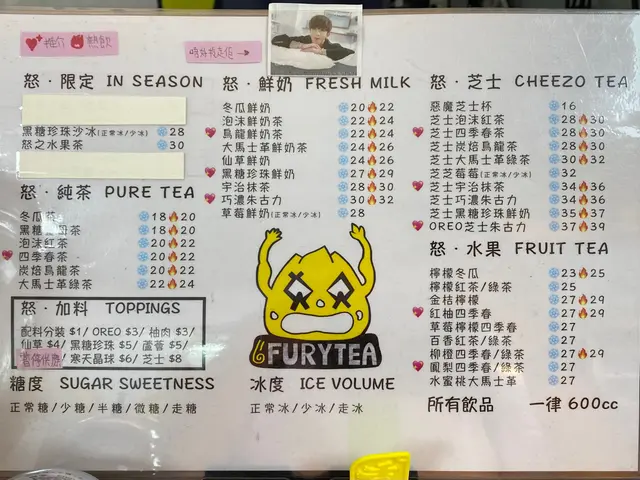 推介 熱飲
怒·限定 IN SEASON
黑糖珍珠沙冰(正常冰/少冰) 28
怒之水果茶 30
怒·純茶 PURE TEA
冬瓜茶 18 20
黑糖 茶 18 20
泡沫紅茶 20 22
四季春茶 20 22
炭焙烏龍茶 20 22
大馬士革綠茶 22 24
怒·加料 TOPPINGS
配料分裝 $1/ OREO $3/ 柚肉 $3/
仙草 $4/ 黑糖珍珠 $5/ 蘆薈 $5/
暫停供應 / 寒天晶球 $6/ 芝士 $8
糖度 SUGAR SWEETNESS
正常糖/少糖/半糖/微糖/走糖
怒·鮮奶 FRESH MILK
冬瓜鮮奶 20 22
泡沫鮮奶茶 22 24
烏龍鮮奶茶 22 24
大馬士革鮮奶茶 24 26
仙草鮮奶 24 26
黑糖珍珠鮮奶 27 29
宇治抹茶 28 30
巧濃朱古力 30 32
草莓鮮奶(正常冰/少冰) 28
FURYTEA
冰度 ICE VOLUME
正常冰/少冰/走冰
怒·芝士 CHEEZO TEA
惡魔芝士杯 16
芝士泡沫紅茶 28 30
芝士四季春茶 28 30
芝士炭焙烏龍茶 28 30
芝士大馬士革綠茶 30 32
芝芝莓莓(正常冰/少冰) 32
芝士宇治抹茶 34 36
芝士巧濃朱古力 34 36
芝士黑糖珍珠鮮奶 35 37
OREO芝士朱古力 37 39
怒·水果 FRUIT TEA
檸檬冬瓜 23 25
檸檬紅茶/綠茶 25
金桔檸檬 27 29
紅柚四季春 27 29
草莓檸檬四季春 27
百香紅茶/綠茶 27
柳橙四季春/綠茶 27 29
鳳梨四季春/綠茶 27
水蜜桃大馬士革 27
所有飲品 一律 600cc